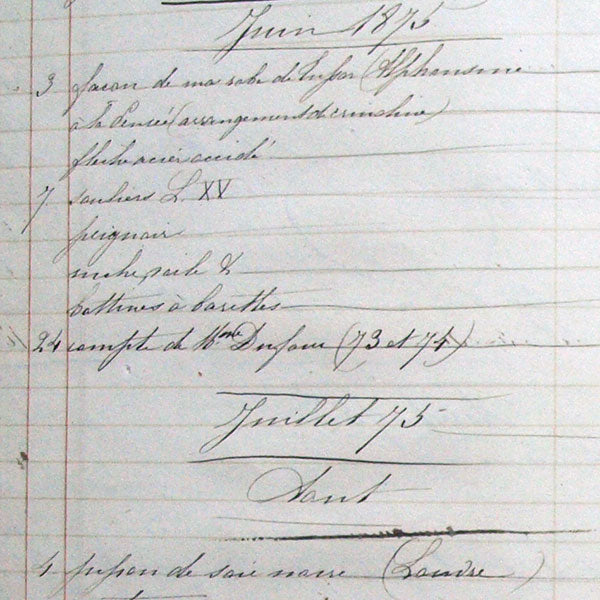 Juin 1875
3 façon de ma robe de tussor (Alphonsine
à la Pensée (arrangement de crinoline)
fleche acier oxidé
7 souliers L. XV
peignoir
ruche, voile &
bottines à barettes
24 compte de Mme Dufour (73 et 74)
Juillet 75
Aout
4 jupon de soie noire (Louvre)